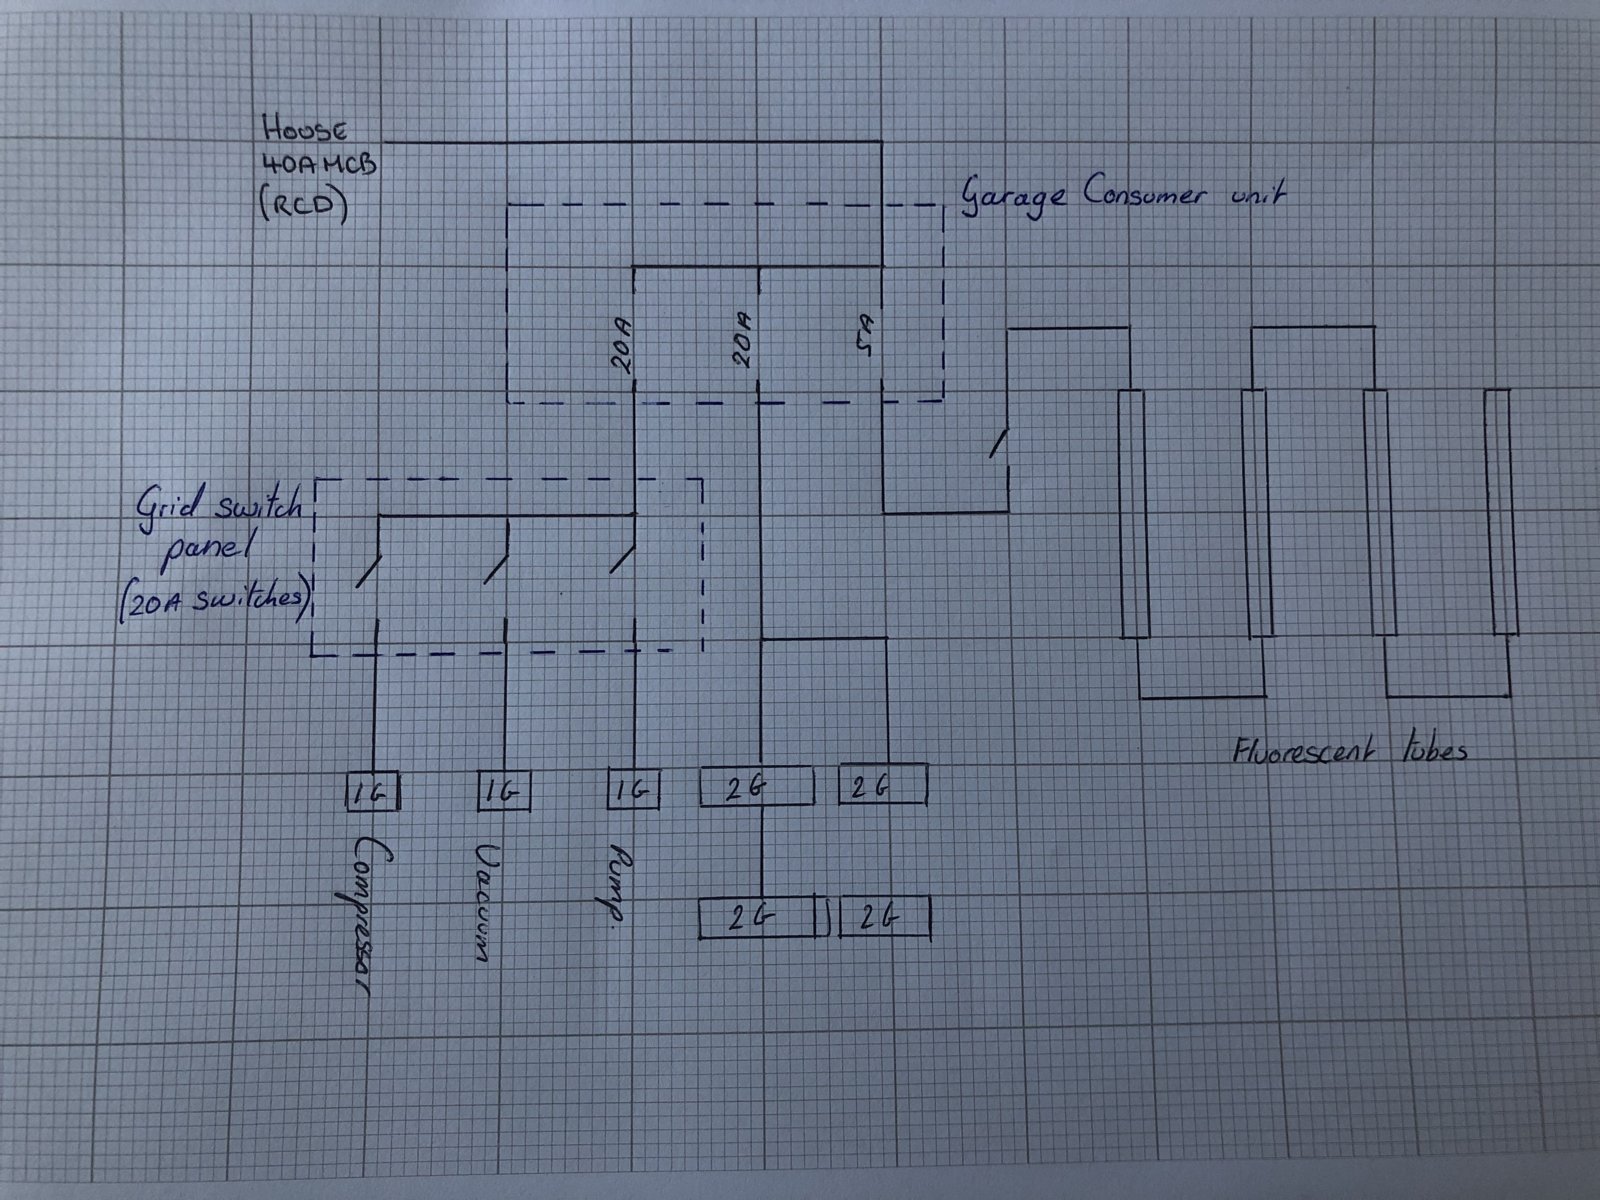 HOUSE
40A MCB
(RCD)
Garage Consumer unit
20A
20A
5A
Grid switch
panel
(20A switches)
Fluorescent tubes
1G
1G
1G
2G
2G
Compressor
Vacuum
Pump.
2G
2G